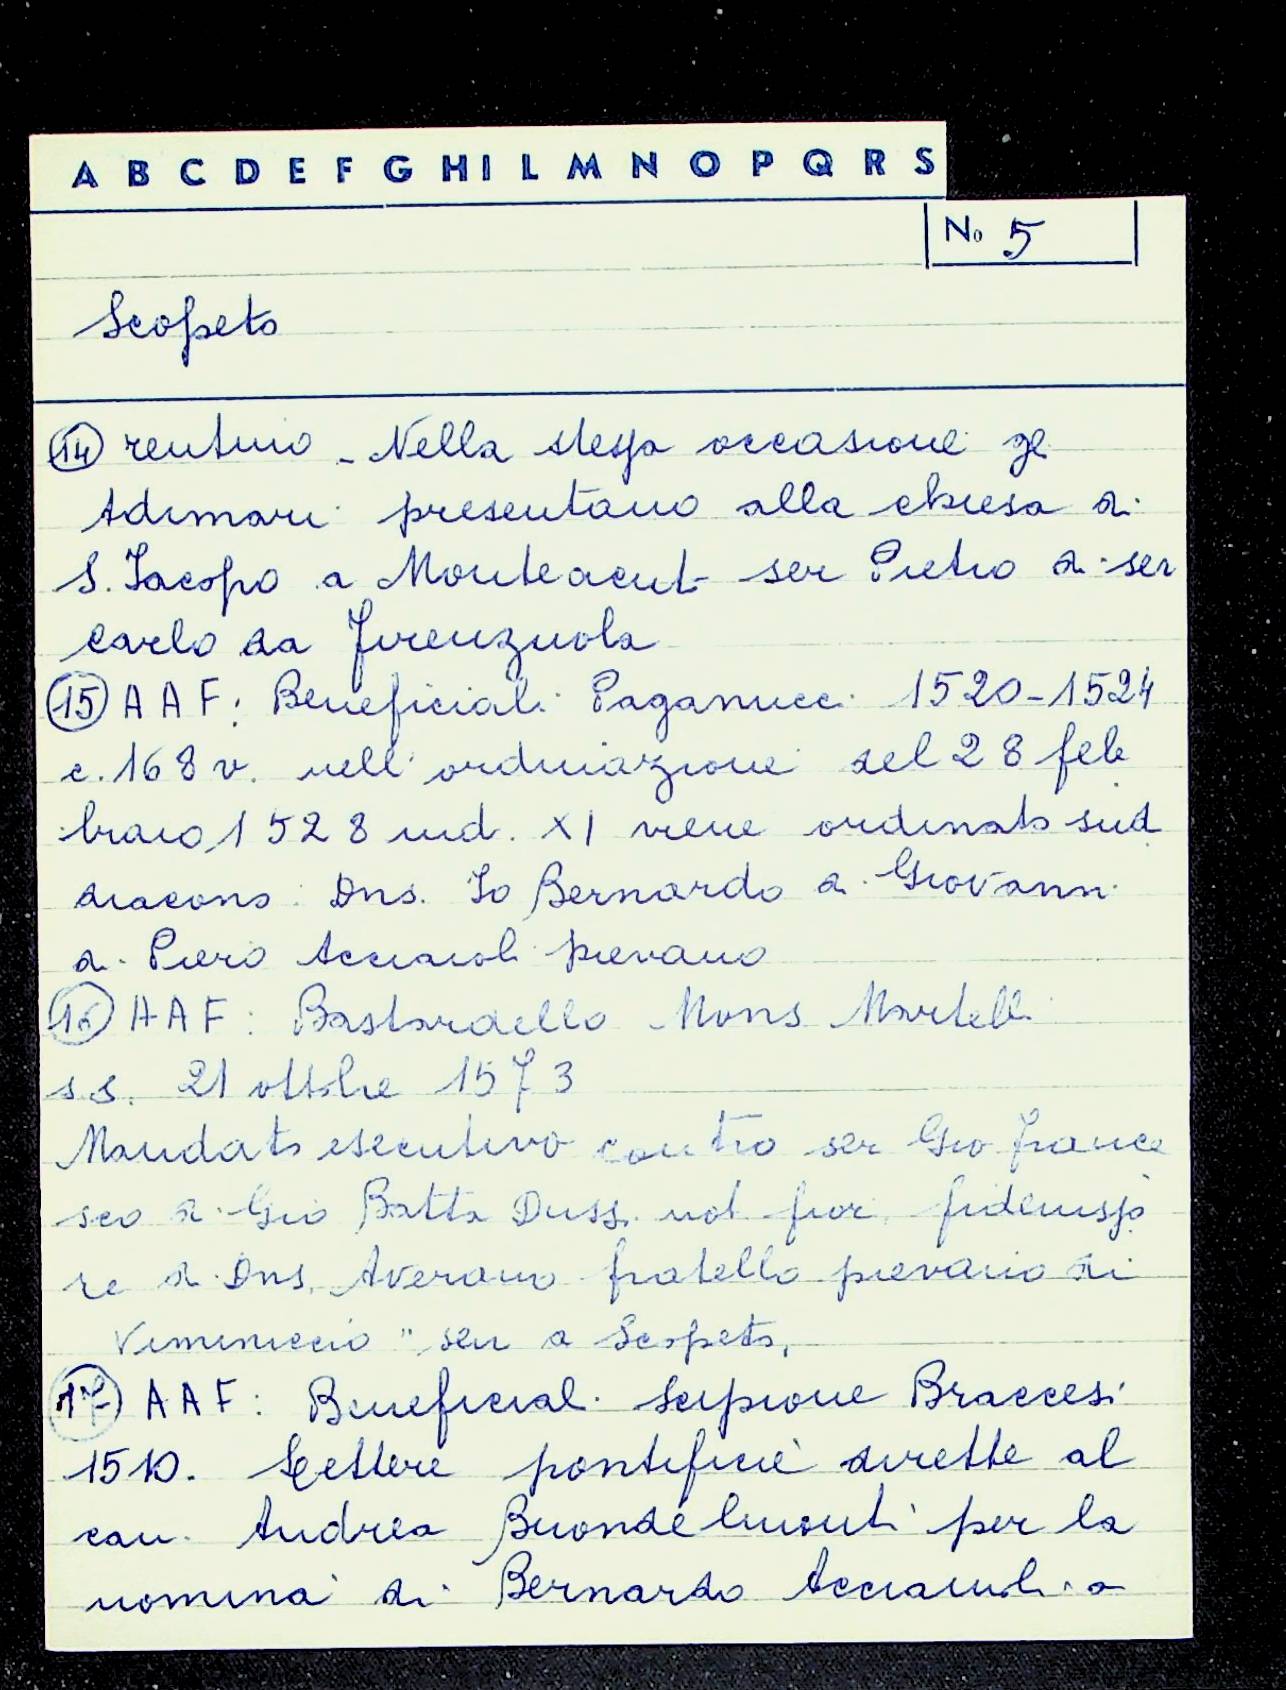 A B C D E F G H I L M N O P Q R S
No 5
Scopeto
14 rentino - Nella stessa occasione gl
Adimari presentano alla chiesa di
S. Jacopo a Monteacuti ser Pietro di ser
Carlo da Firenzuola
15 A A F: Beneficiali Paganucci 1520-1524
c. 168 v. nell'ordinazione del 28 feb
braio 1528 ind. XI viene ordinato sud
diacono: Dns. Jo Bernardo di Giovanni
di Piero Acciaioli pievano
16 A A F: Bastardello Mons Martelli
s.s. 21 ottobre 1573
Mandato esecutivo contro ser Gio France
sco di Gio Batta Duss. not fior. fideiusso
re di Dns. Averano fratello pievano di
Viminiccio "seu a Scopeto,
17 A A F: Beneficiali Scipione Braccesi
1510. Lettere pontificie dirette al
can. Andrea Buondelmonti per la
nomina di Bernardo Acciaiuoli a